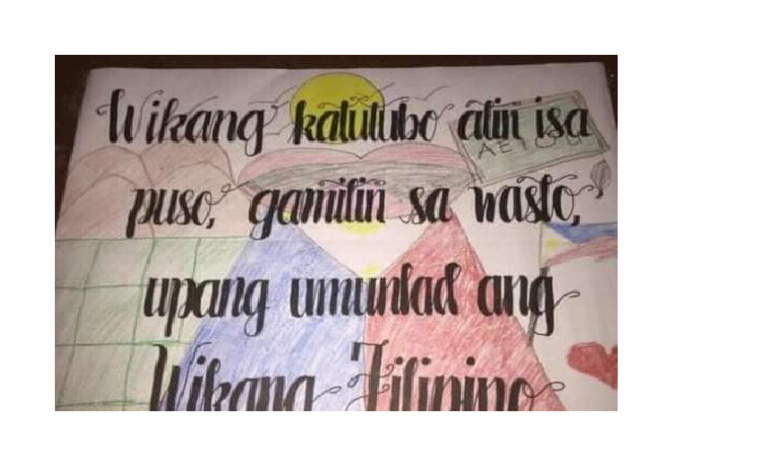 Wikang katutubo atin isa
puso, gamitin sa wasto,
upang umunlad ang
Wikang Filipino
AEIOU